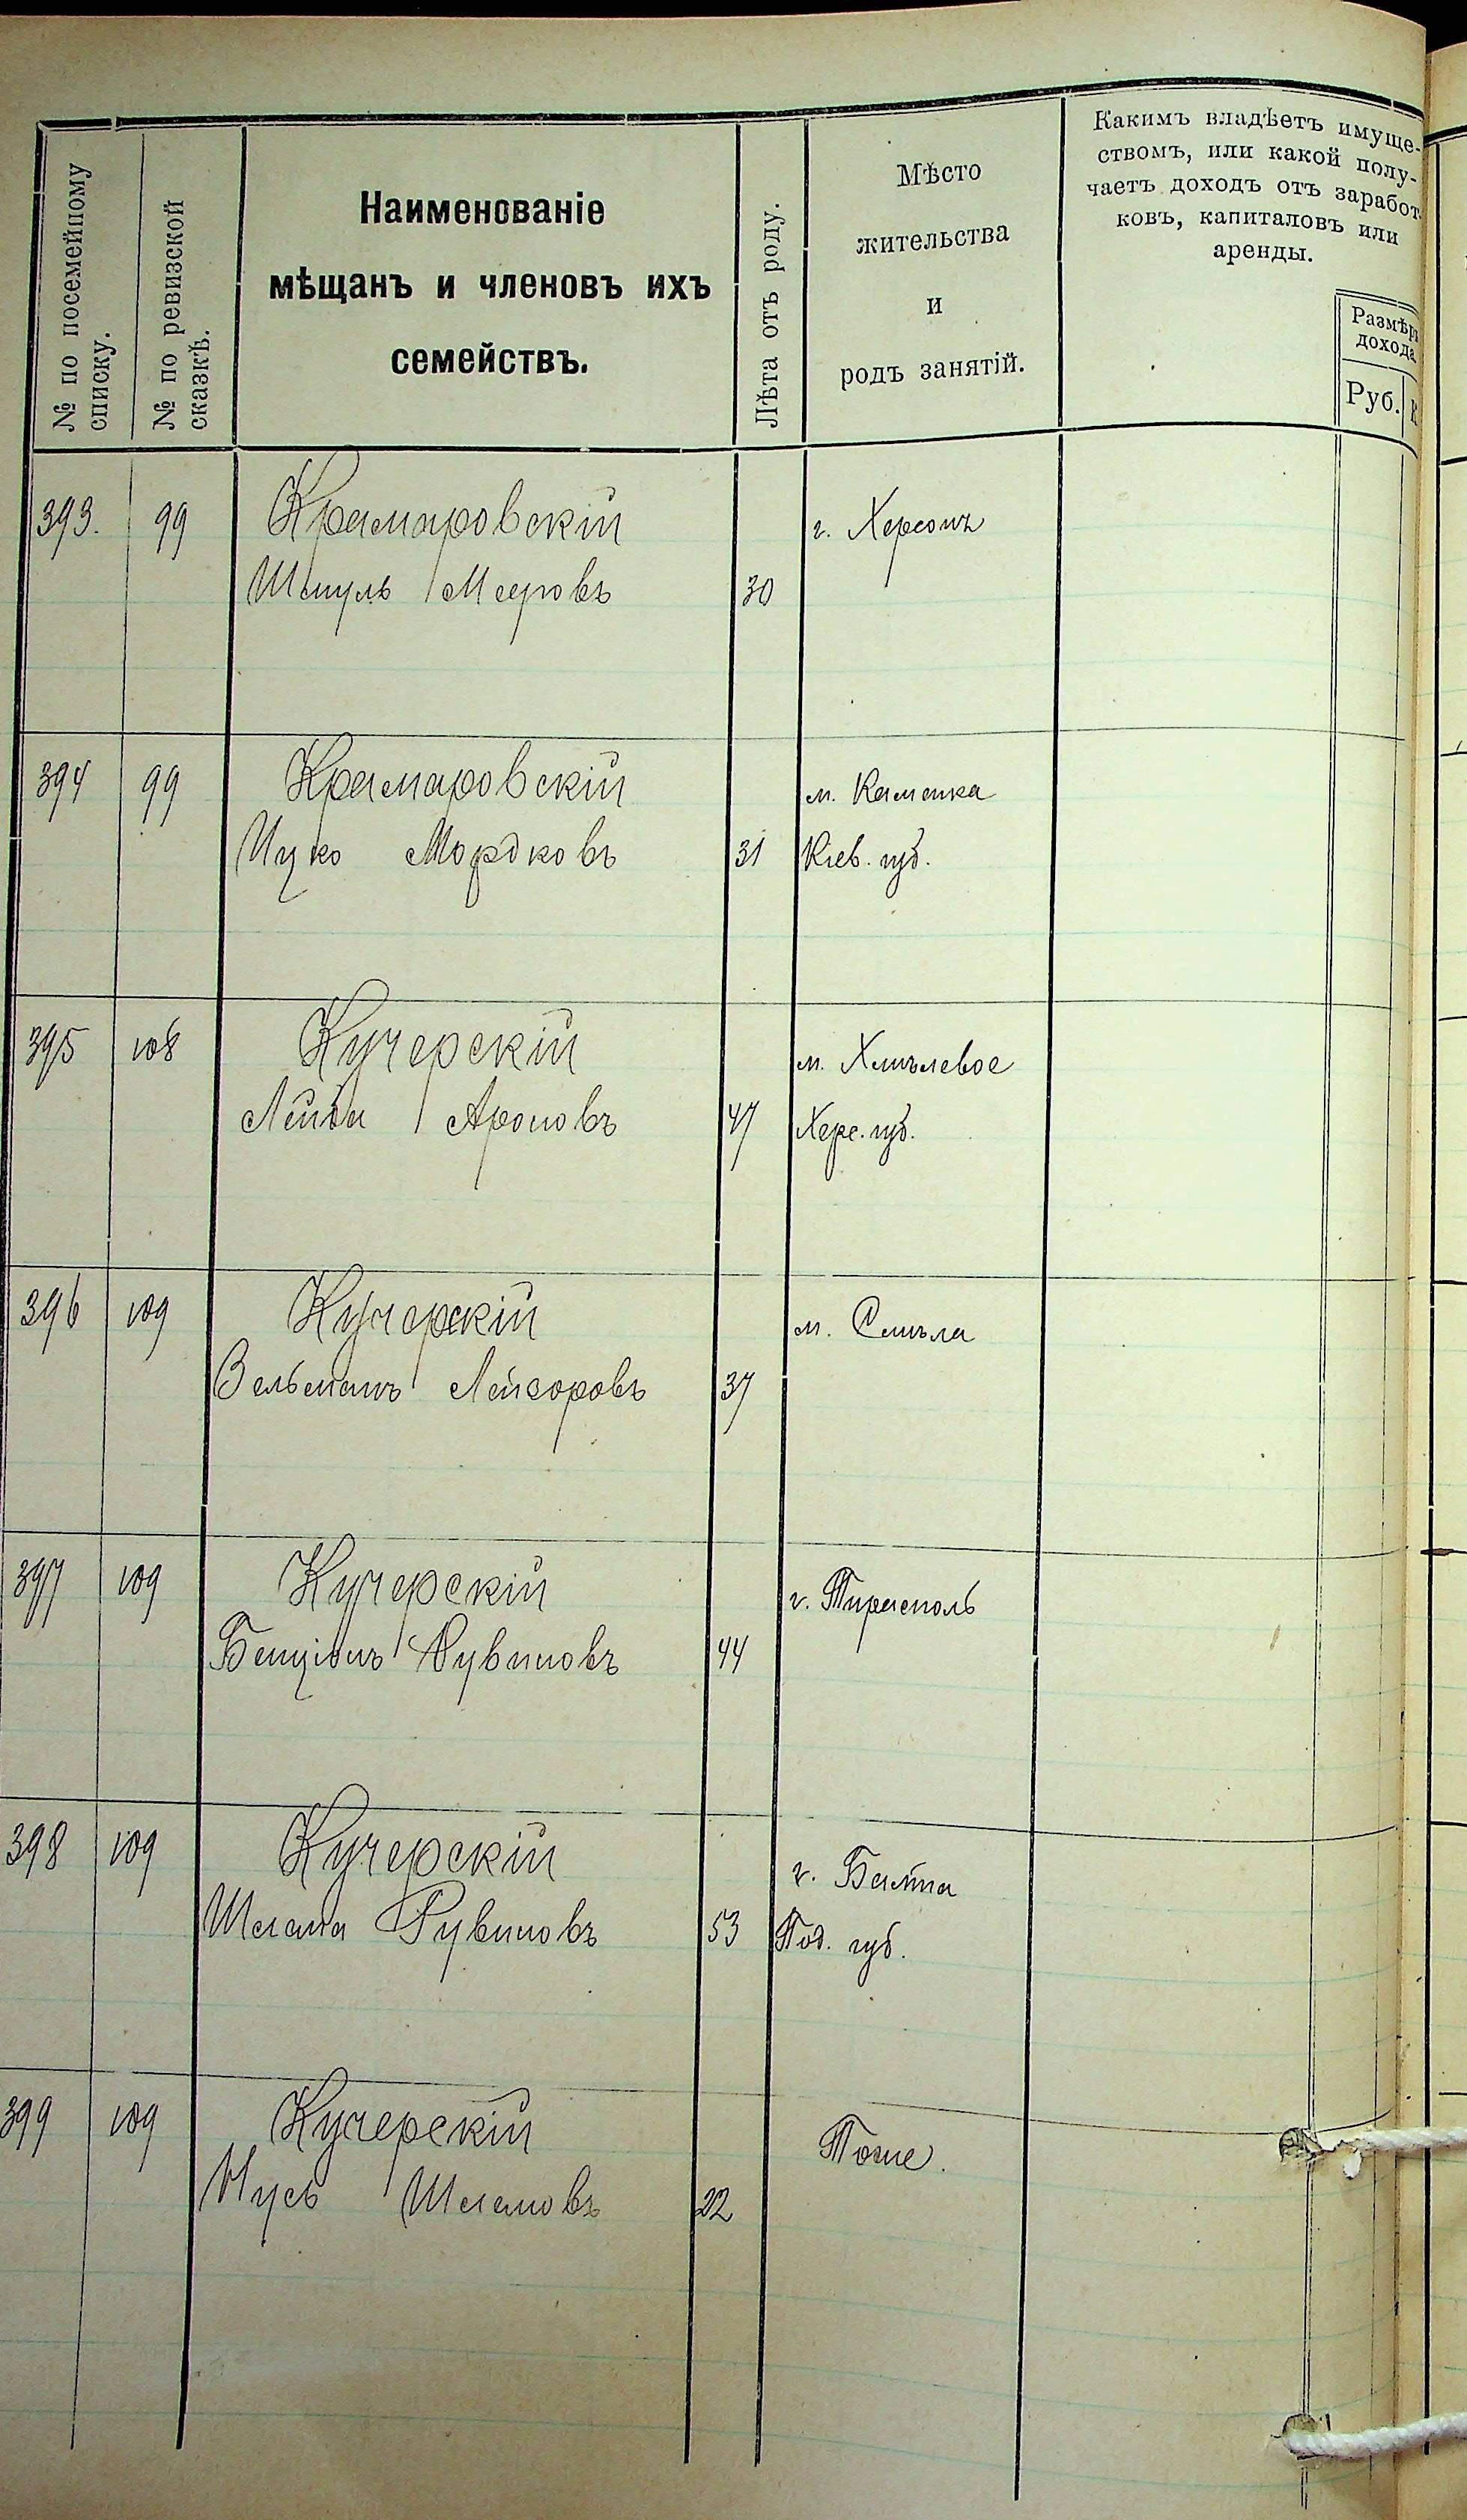 № по посемейному
списку.
№ по ревизской
сказкѣ.
Наименованіе
мѣщанъ и членовъ ихъ
семействъ.
Лѣта отъ роду.
Мѣсто
жительства
и
родъ занятій.
Какимъ владѣетъ имуще-
ствомъ, или какой полу-
чаетъ доходъ отъ заработ-
ковъ, капиталовъ или
аренды.
Размѣръ
дохода
Руб.
393. 99 Крамаровскій г. Херсонъ
Шмуль Мееровъ 30
394 99 Крамаровскій м. Каменка
Ицко Мордковъ 31 Кіев. губ.
395 108 Кучерскій м. Хмѣлевое
Лейба Ароновъ 47 Херс. губ.
396 109 Кучерскій м. Смѣла
Зельманъ Лейзоровъ 37
397 109 Кучерскій г. Тирасполь
Бенціонъ Рувиновъ 44
398 109 Кучерскій г. Балта
Шлема Рувиновъ 53 Под. губ.
399 109 Кучерскій Тоже.
Нусь Шлемовъ 22